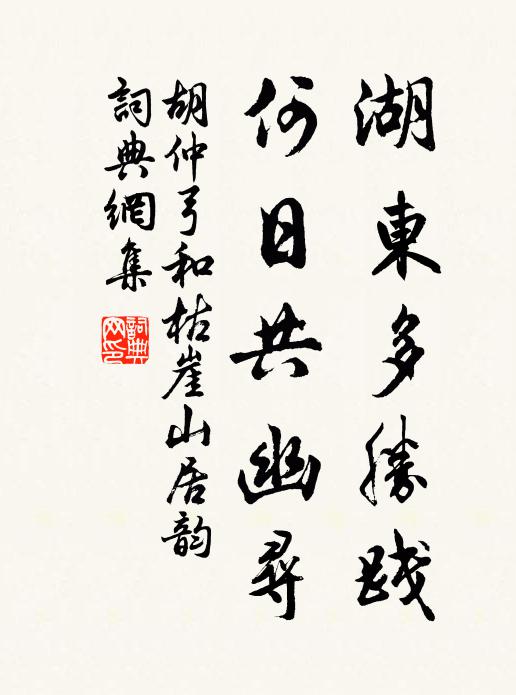 湖東多勝踐
何日共幽尋
胡仲弓和枯崖山居韵
詞典網集
詞典网印